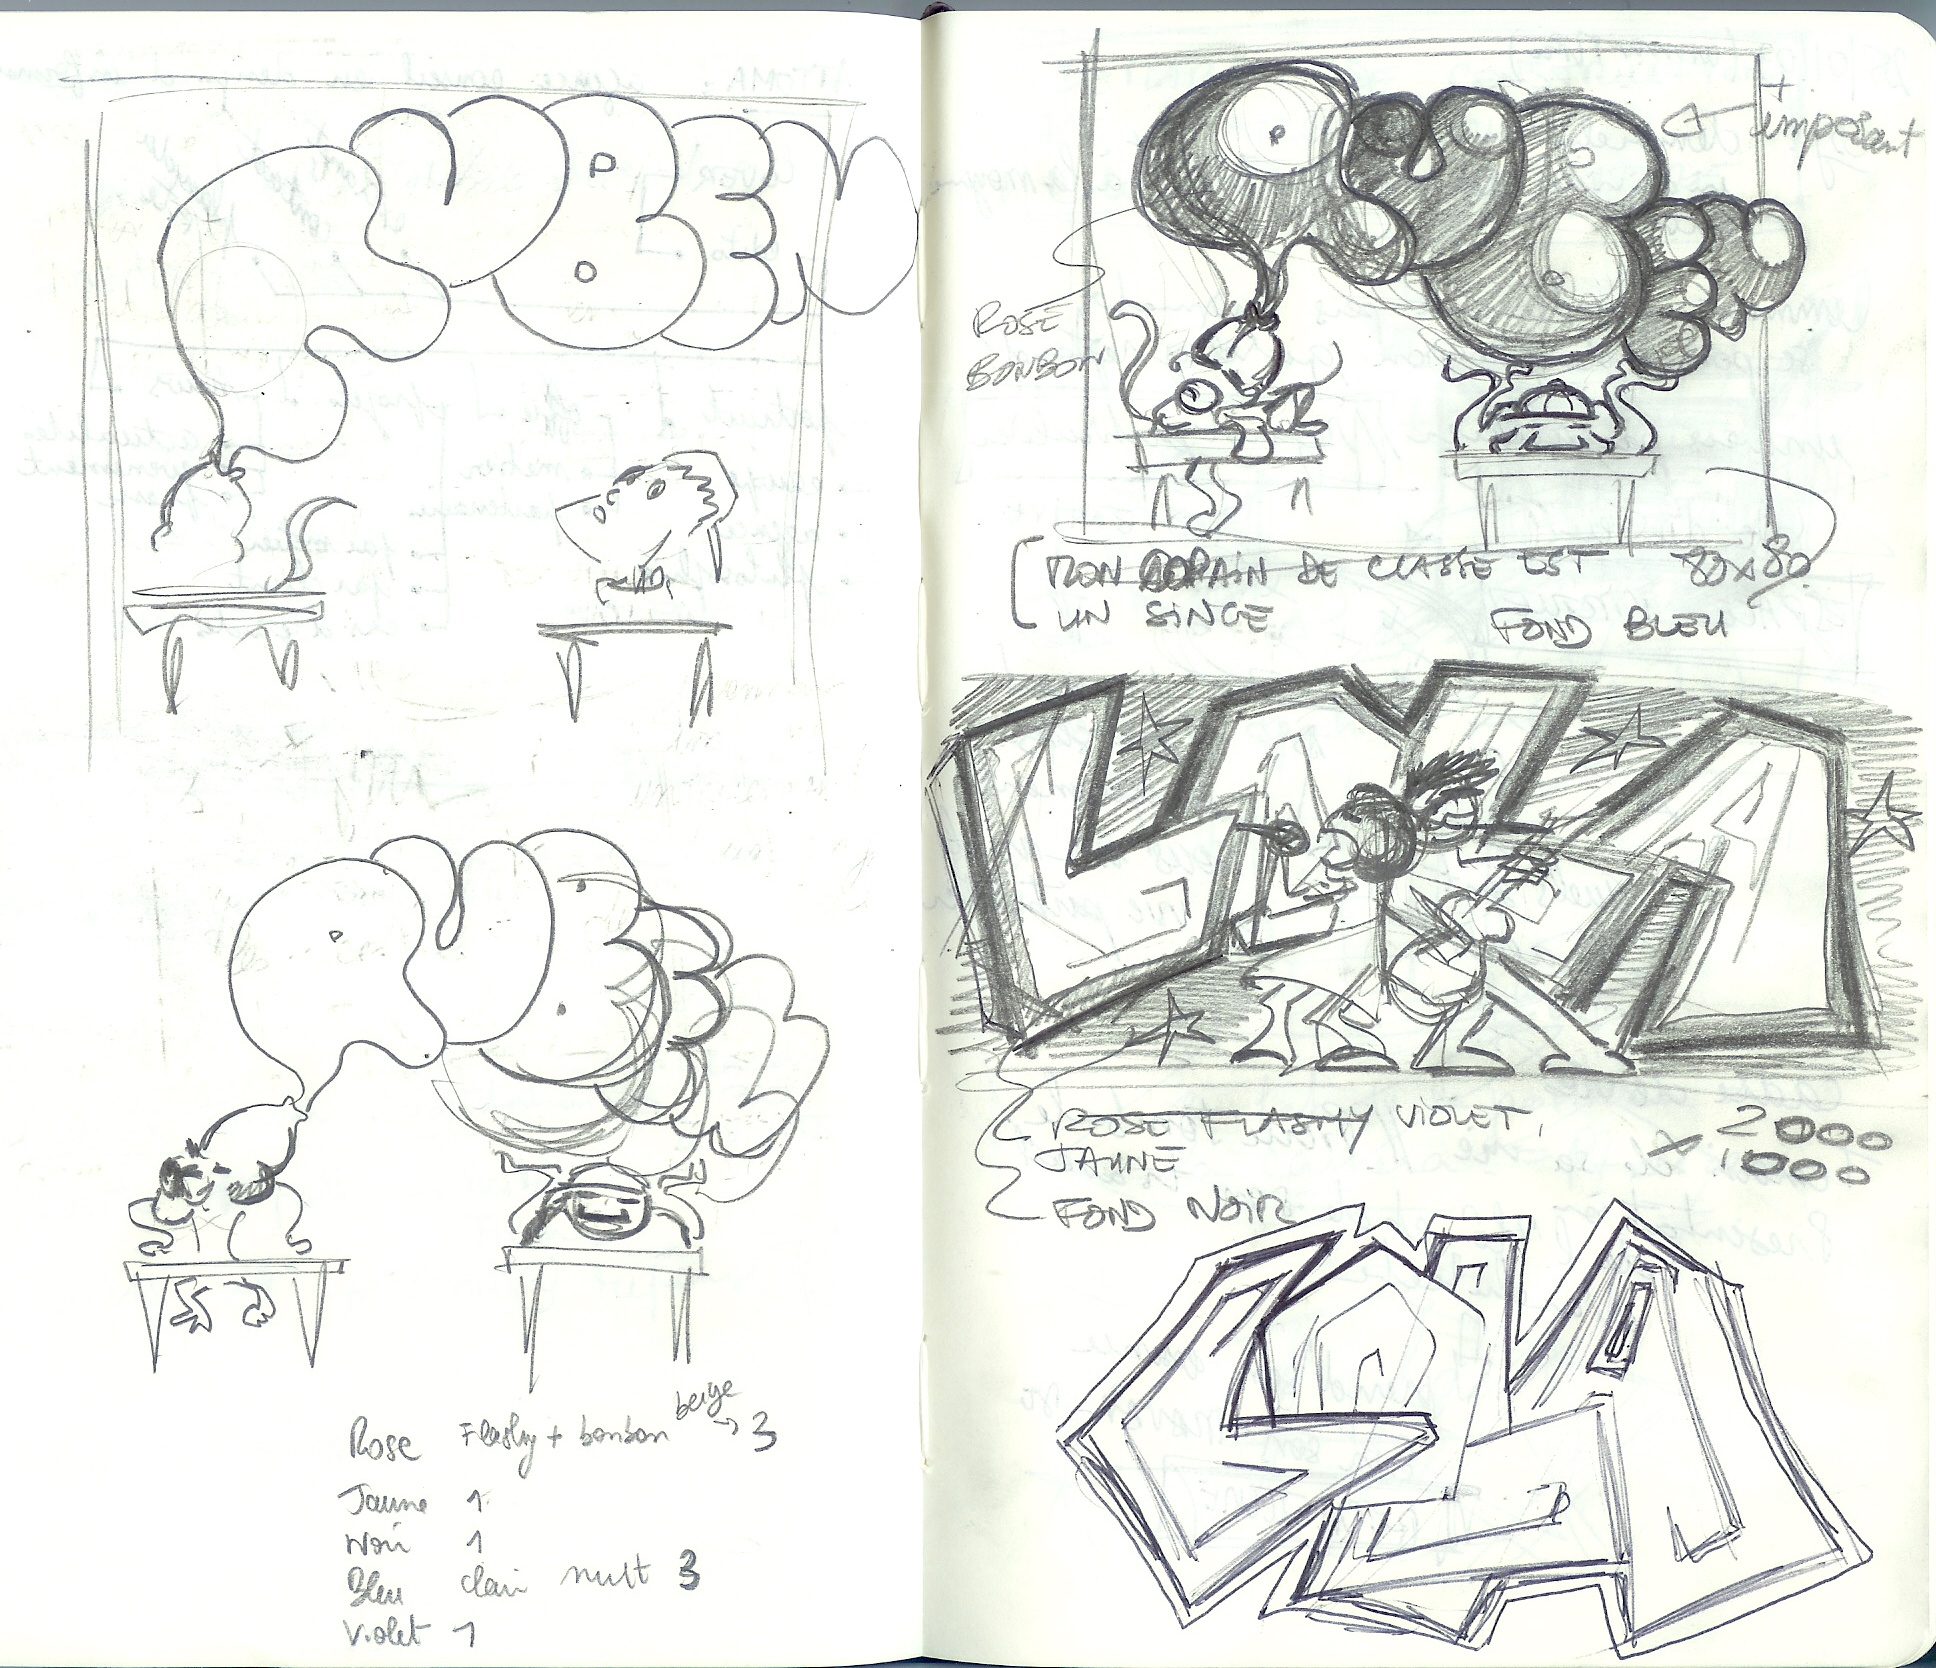 RUBEN
RUBEN
Rose Flashy + bonbon beige → 3
Jaune 1
Noir 1
Bleu clair nuit 3
Violet 1
RUBEN
+
imposant
ROSE
BONBON
MON COPAIN DE CLASSE EST 80x80
UN SINGE FOND BLEU
ROSE FLASHY VIOLET, 2000
JAUNE x 1000
FOND NOIR